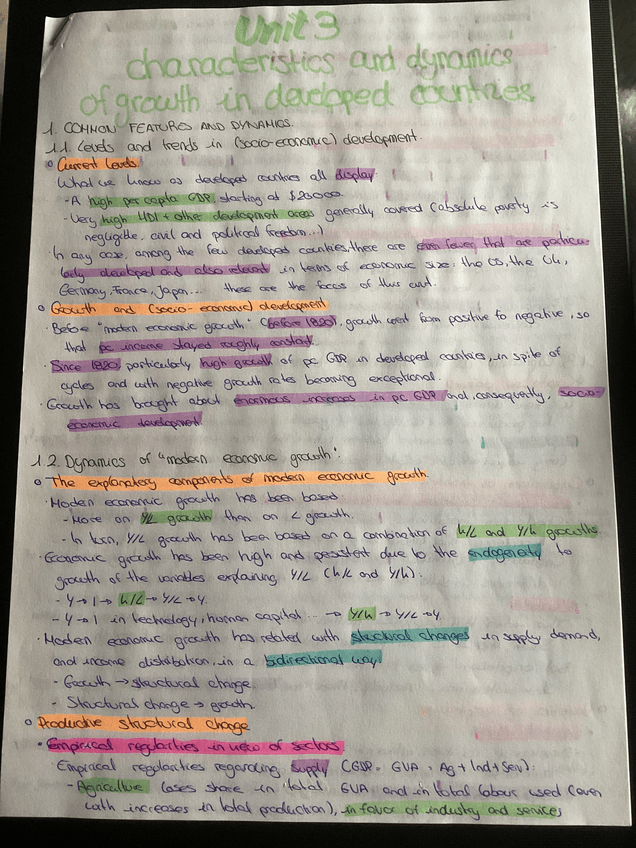 Unit 3
characteristics and dynamics
of growth in developed countries
1. COMMON FEATURES AND DYNAMICS.
1.1. Levels and trends in (socio-economic) development.
Current Levels
What we know as developed countries all display
- A high per capita GDP starting at $20000.
- Very high HDI + other development areas generally covered (absolute poverty is
negligible, civil and political freedom...)
· In any case, among the few developed countries, there are even fewer that are particu-
larly developed and also relevant in terms of economic size: the US, the UK,
Germany, France, Japan... these are the focus of this unit.
Growth and (socio-economic) development
· Before "modern economic growth" (before 1820), growth went from positive to negative, so
that pc income stayed roughly constant.
· Since 1820, particularly high growth of pc GDP in developed countries, in spite of
cycles and with negative growth rates becoming exceptional.
· Growth has brought about enormous increases in pc GDP and, consequently, socio-
economic development.
1.2. Dynamics of "modern economic growth".
The explanatory components of modern economic growth.
· Modern economic growth has been based
- More on Y/L growth than on L growth.
- In turn, Y/L growth has been based on a combination of K/L and Y/K growths.
· Economic growth has been high and persistent due to the endogeneity to
growth of the variables explaining Y/L (K/L and Y/K):
- Y → I → K/L → Y/L → Y.
- Y → I in technology, human capital... → Y/K → Y/L → Y
· Modern economic growth has related with structural changes in supply demand,
and income distribution, in a bidirectional way.
- Growth → structural change.
- Structural change → growth.
Productive structural change
· Empirical regularities in view of sectors
Empirical regularities regarding supply (GDP = GVA = Ag + Ind + Serv):
- Agriculture loses share in total GVA and in total labour used (even
with increases in total production), in favor of industry and services